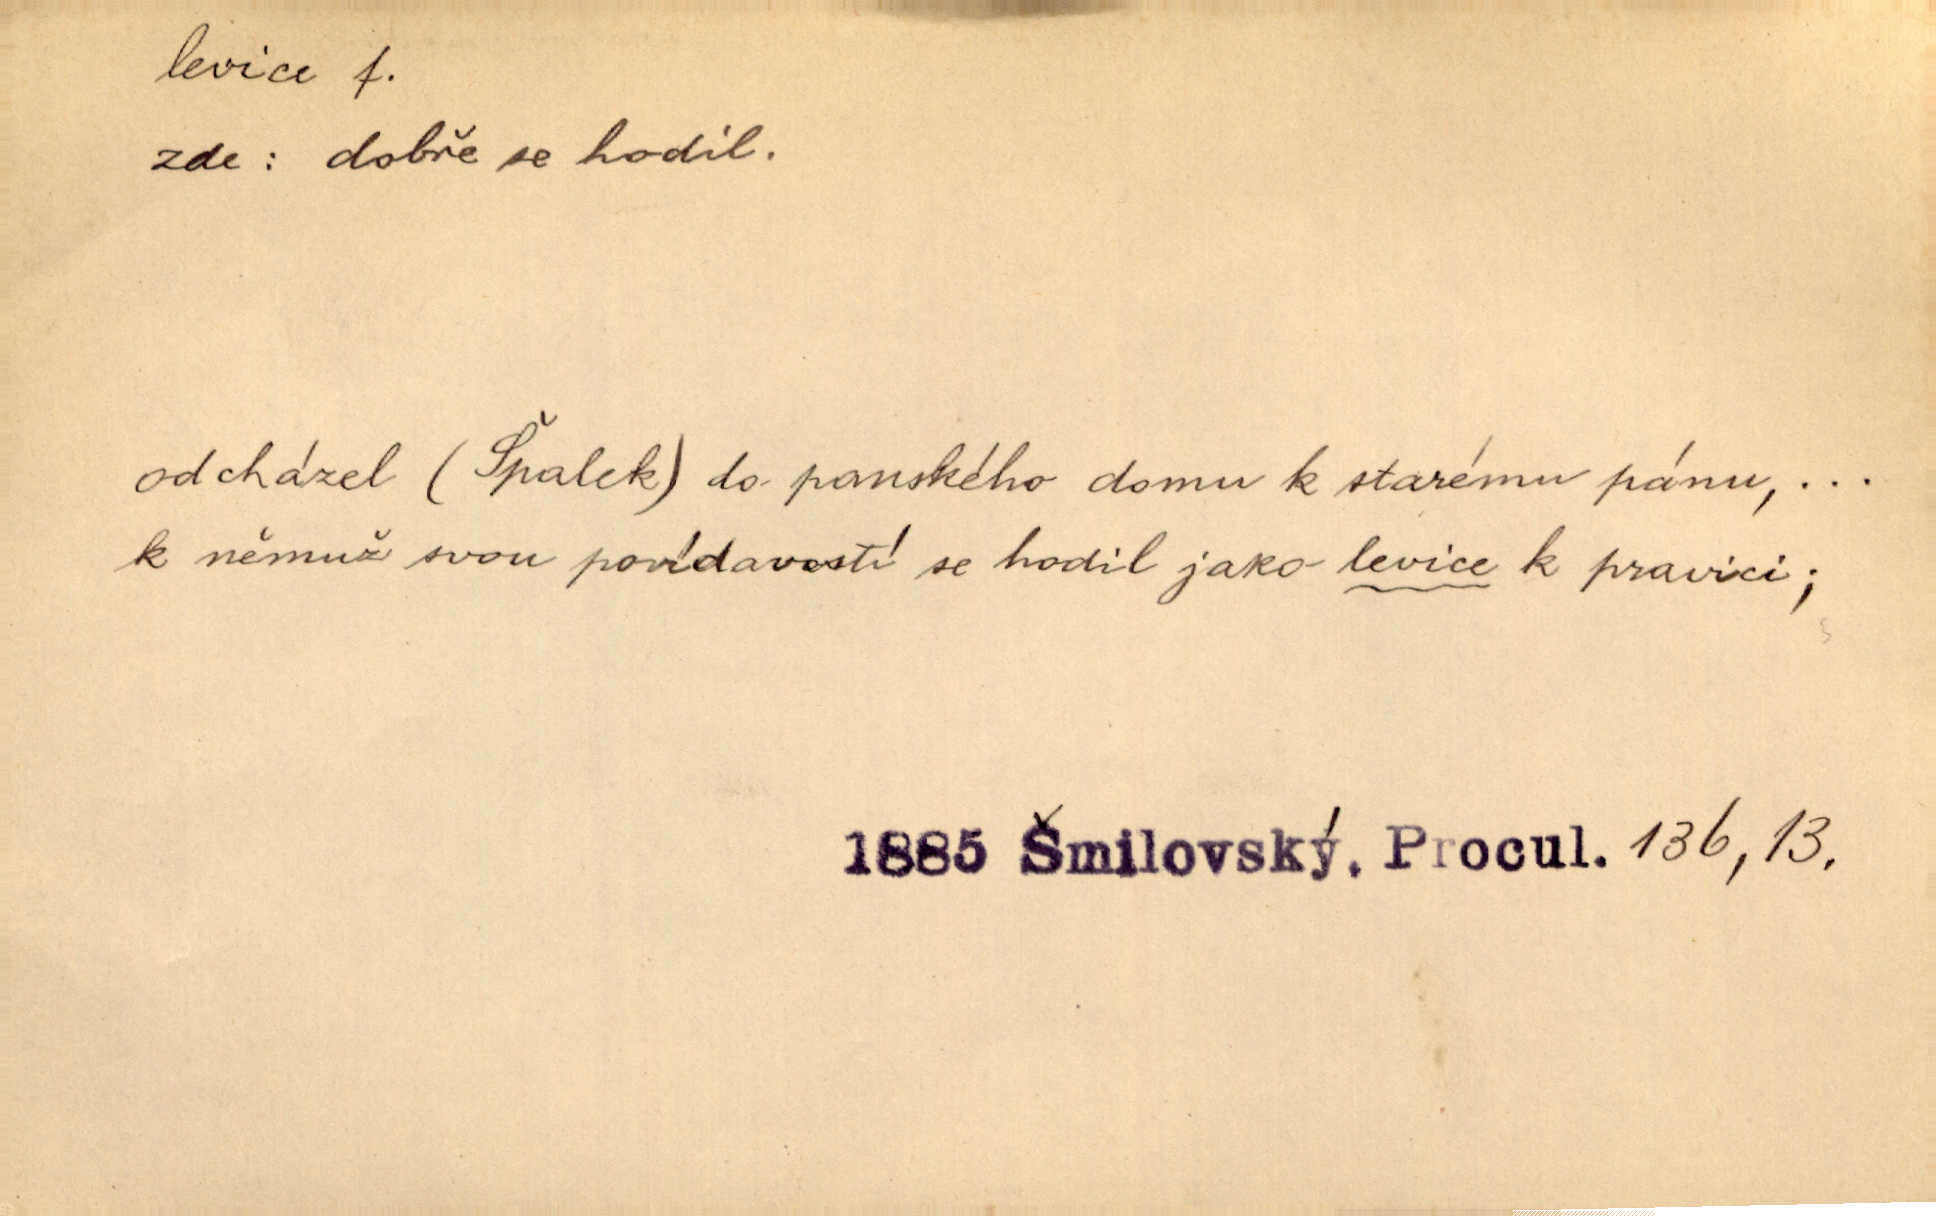 levice f.
zde: dobře se hodil.
odcházel (Špalek) do panského domu k starému pánu, ...
k němuž svou povídavostí se hodil jako levice k pravici;
1885 Šmilovský. Procul. 136, 13.